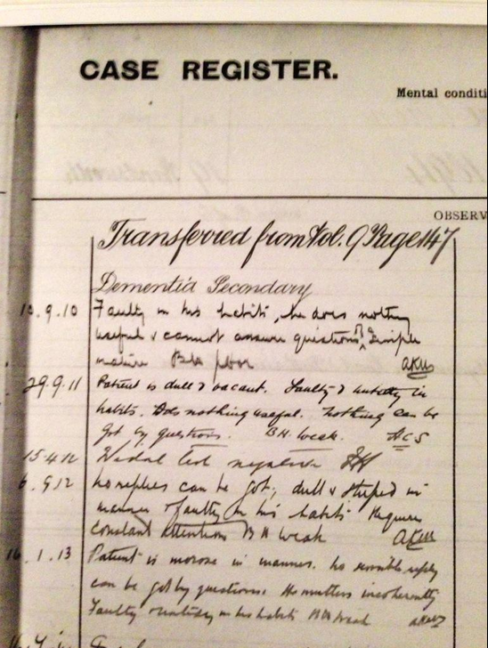 CASE REGISTER.
Mental conditi
OBSERV
Transferred from Vol. 9 Page 147
Dementia Secondary
9.10 Faulty in his habits, he does nothing
useful & cannot answer questions,
nature BH poor
29.9.11 Patient is dull & vacant. Faulty & untidy in
habits. Does nothing useful. Nothing can be
got by questions. B.H. weak. ACS
15.4.12 test negative
6.9.12 No replies can be got, dull & stupid in
manner & faulty in his habits Requires
constant attention BH weak
1.13 Patient is morose in manner. No reply
can be got by questions. He mutters incoherently
Faulty & untidy in his habits BH weak